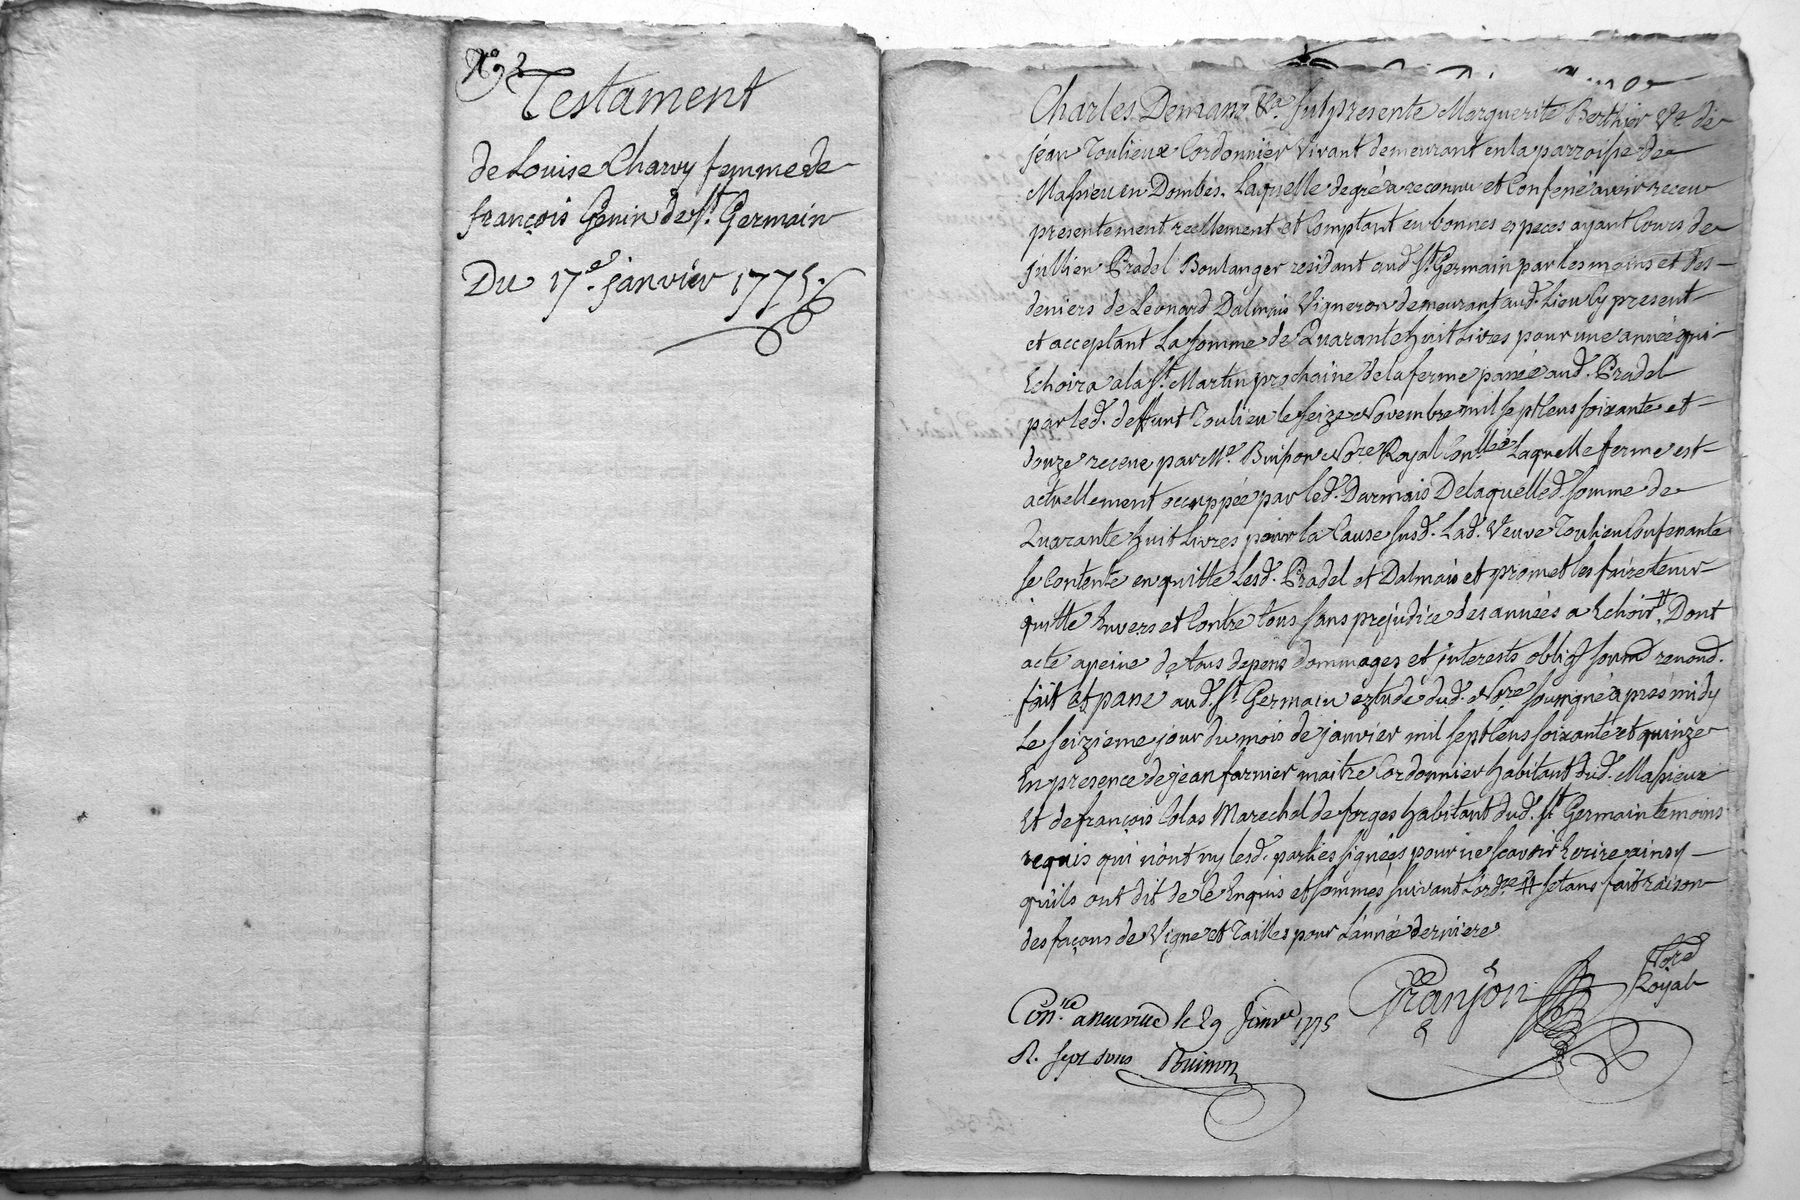 N° 2
Testament
de Louise Charvy femme de
françois Genin de St. Germain
Du 17e. janvier 1775.
fut presente Marguerite Berthier Ve. de
jéan Toulieux Cordonnier vivant demeurant en la parroisse de
Massieu en Dombes. Laquelle de gré a reconnu et Confessé avoir receu
presentement reellement et Comptant en bonnes especes ayant Cours de
jullien Pradel Boulanger residant aud. St. Germain par les mains et des
deniers de Léonord Dalmais Vigneron demeurant aud. Lieu Cy present
et acceptant La somme de Quarante huit Livres pour une année qui
Echoira a la St. Martin prochaine de la ferme passée aud. Pradel
par led. deffunt Toulieu le seize Novembre mil sept Cens soixante et
douze receue par Me. Buisson Nore Royal Laquelle ferme est
actuellement occuppée par led. Darmais De laquelled. somme de
Quarante huit Livres pour la Cause susd. Lad. Veuve Toulieu Confessante
se Contente en quitte Lesd. Pradel et Dalmais et promet les faire tenir
quitte Envers et Contre tous sans prejudice des années a Echoir #. Dont
acte a peine de tous depens dommages et interests oblig. soumd. renond.
fait et passé aud. St. Germain eztude dud. Nore soussigné apres midy
Le seizieme jour du mois de janvier mil sept Cens soixante et quinze
En presence de jean farnier maitre Cordonnier habitant dud. Massieux
Et de françois Colas Marechal de forges habitant dud. St. Germain temoins
requis qui n'ont ny lesd. parties signées pour ne scavoir Ecrire ainsy
qu'ils ont dit de ce Enquis et sommés suivant L'ordce # setans fait raison
des façons de Vigne et Tailles pour L'année derniere
Granjon Nore
Royal
Con.lé a neuville le 29 Janv. 1775
R. sept sous Buisson